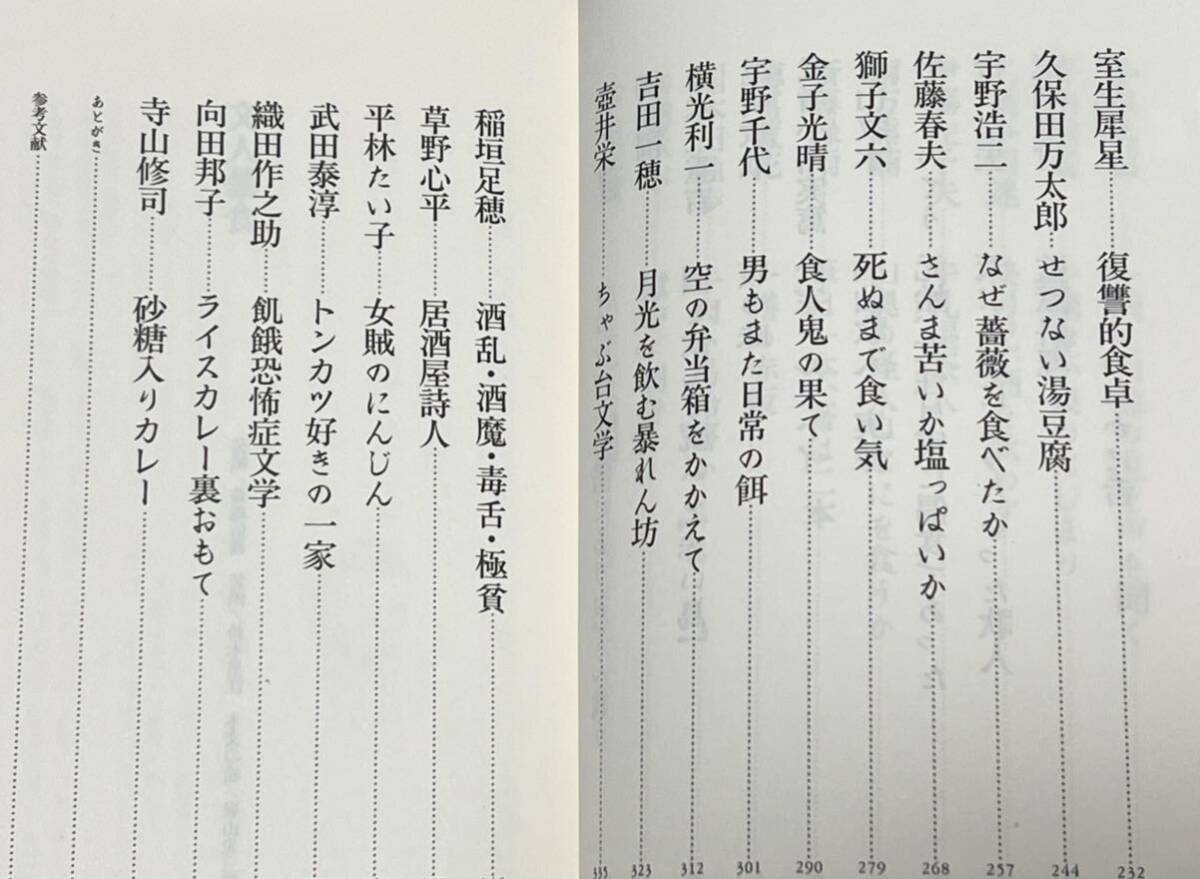 室生犀星……復讐的食卓……232
久保田万太郎……せつない湯豆腐……244
宇野浩二……なぜ薔薇を食べたか……257
佐藤春夫……さんま苦いか塩っぱいか……268
獅子文六……死ぬまで食い気……279
金子光晴……食人鬼の果て……290
宇野千代……男もまた日常の餌……301
横光利一……空の弁当箱をかかえて……312
吉田一穂……月光を飲む暴れん坊……323
壺井栄……ちゃぶ台文学……335
稲垣足穂……酒乱・酒魔・毒舌・極貧……
草野心平……居酒屋詩人……
平林たい子……女賊のにんじん……
武田泰淳……トンカツ好きの一家……
織田作之助……飢餓恐怖症文学……
向田邦子……ライスカレー裏おもて……
寺山修司……砂糖入りカレー……
あとがき……
参考文献……